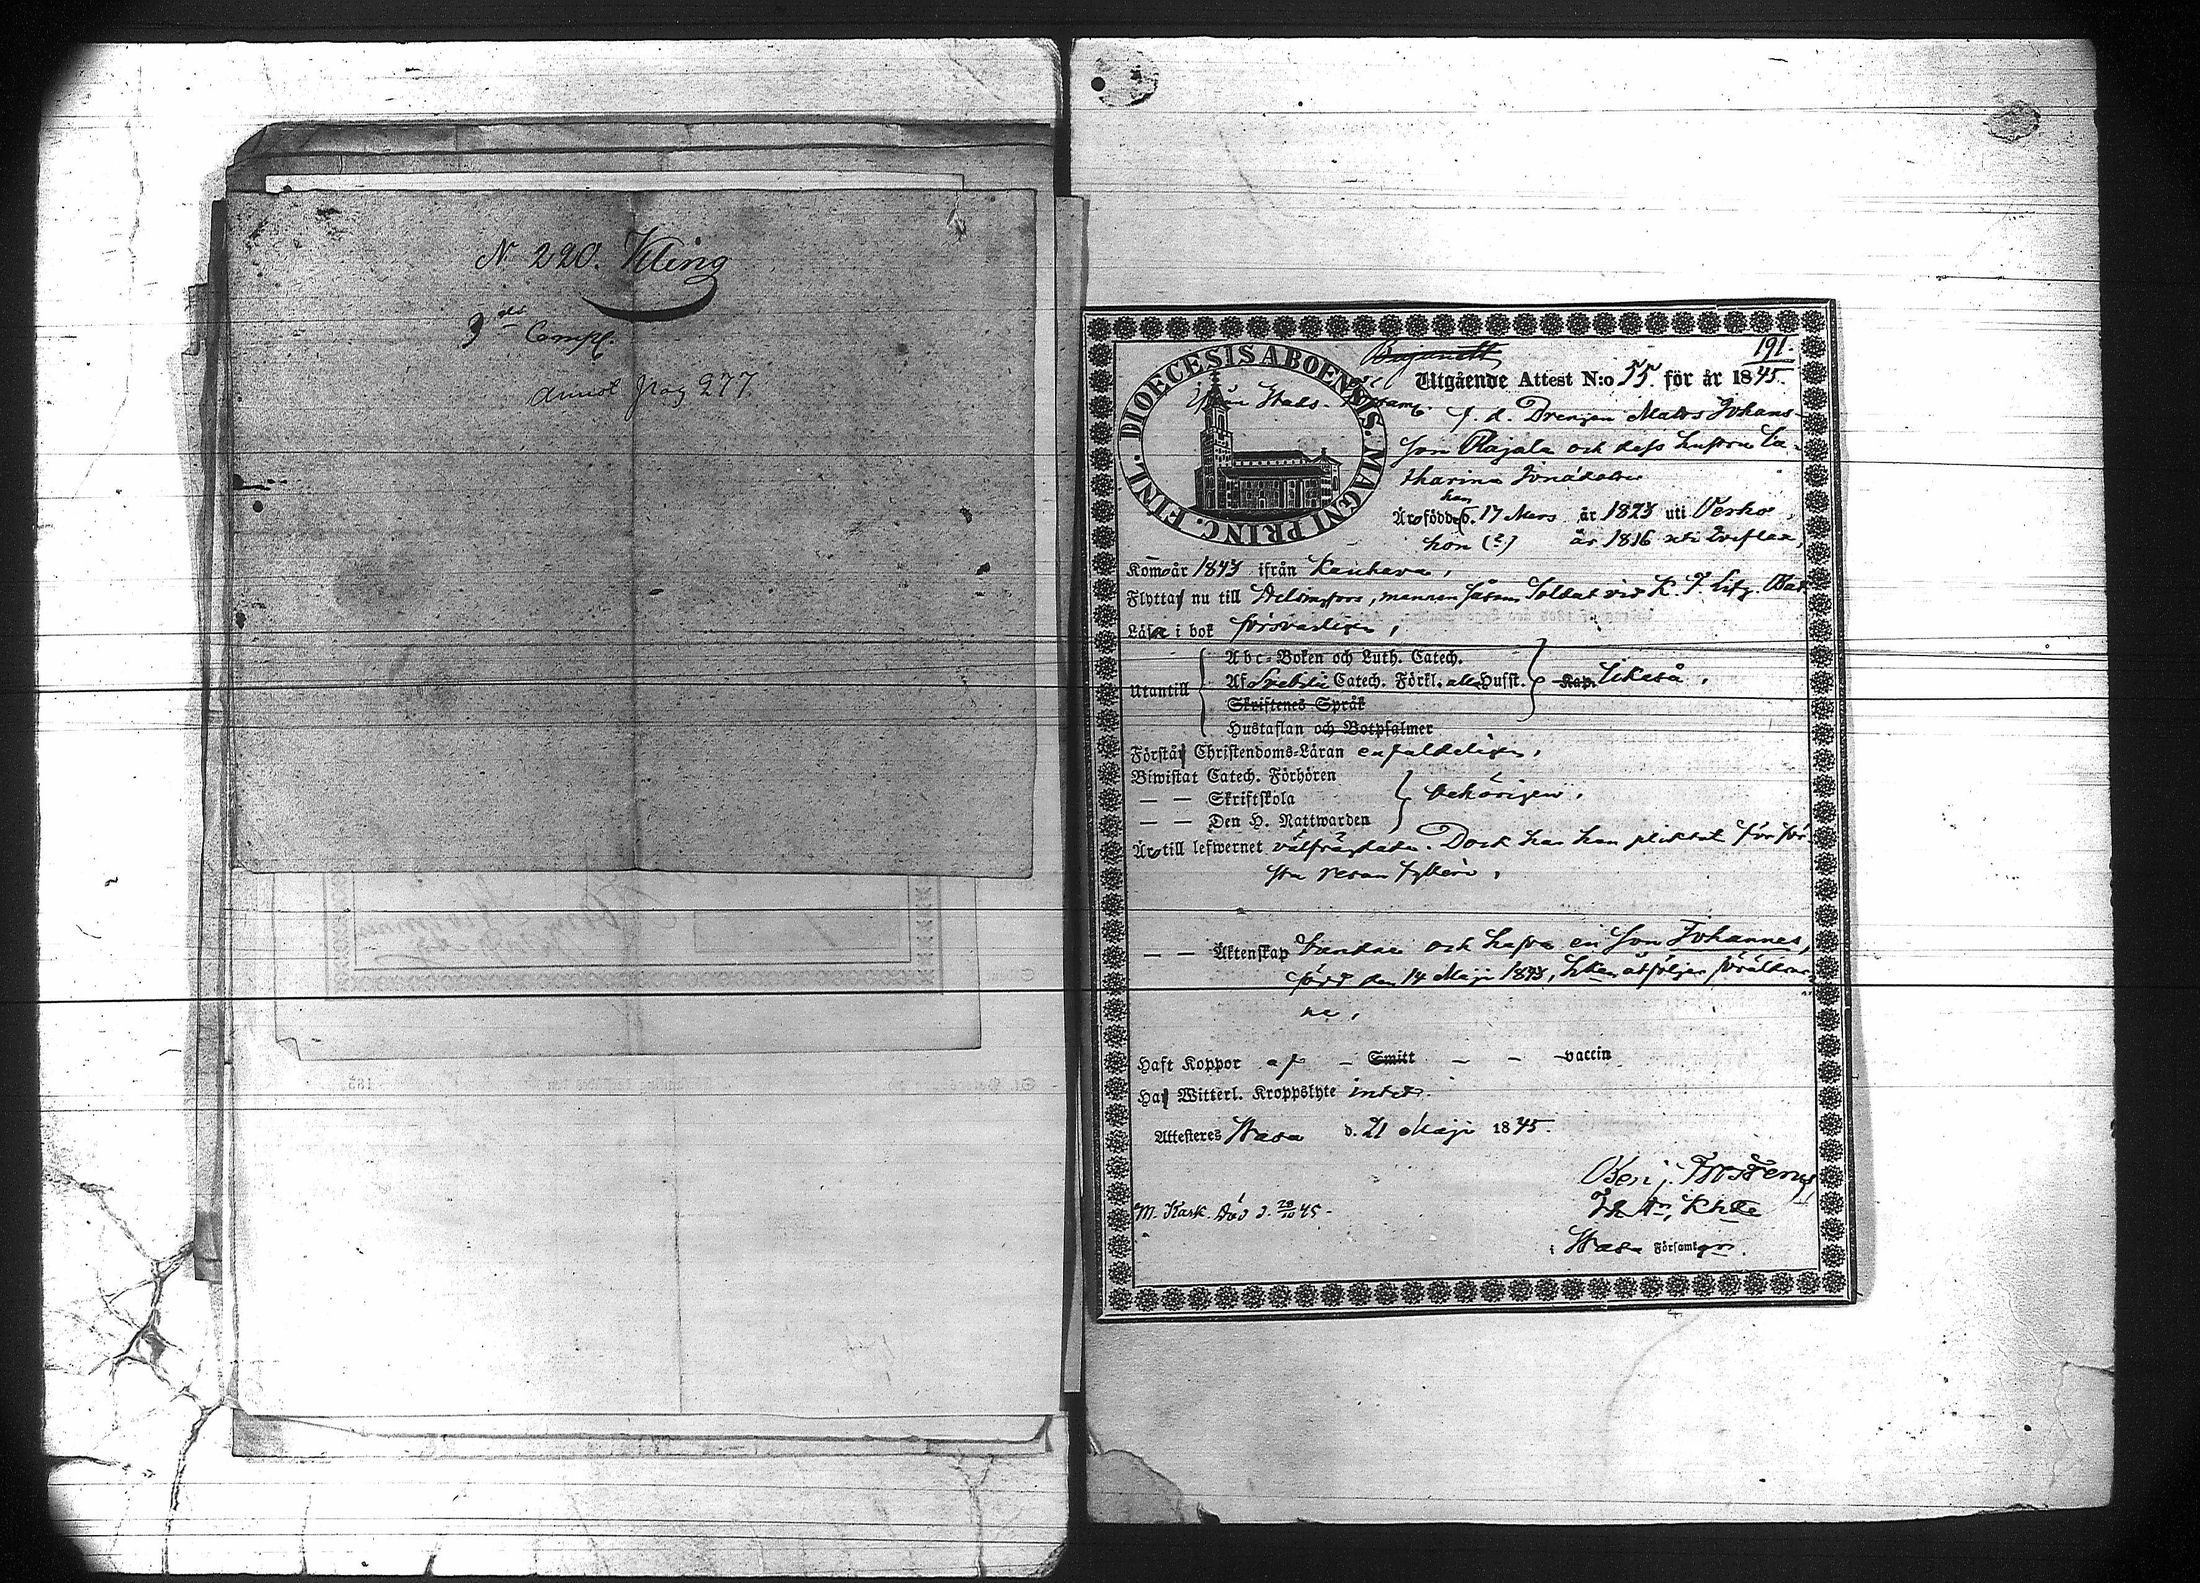 N 220. Kling
3die Comp.
annot pag 277
191.
DIOECESIS ABOENSIS. MAGNI PRINC. FINL.
Utgående Attest N:o 55. för år 1845.
Stads-
f. d. Drengen Matts Johans-
son Rajala och dess hustru Ca-
tharina
han
Äro födde d. 17 Mars år 1823 uti
hon (?) år 1816 uti
Komo år 1843 ifrån Kauhava,
Flytta nu till Helsingfors, mannen såsom Soldat vid K. F. Lifg. Bat.
Läsa i bok försvarligen,
Utantill
Abc-Boken och Luth. Catech.
Af Svebilii Catech. Förkl. alla Hufst. Kap. likaså,
Skriftenes Språk
Hustaflan och Botpsalmer
Förstå Christendoms-Läran enfaldeligen,
Biwistat Catech. Förhören
— — Skriftskola behörigen,
— — Den H. Nattwarden
Äro till lefwernet välfrägdade. Dock har han pliktat för för-
sta resan fylleri,
— — Äktenskap bundne och hafva en son Johannes,
född den 14 Maji 1843, hvilken åtföljer föräldrar-
ne,
Haft Koppor af — Smitt — — vaccin
Ha Witterl. Kroppslyte intet.
Attesteres Wasa d. 21 Maji 1845.
Benj. Frosterus
M. Kask. död d. 28/10 45.
i Wasa Församlgn.